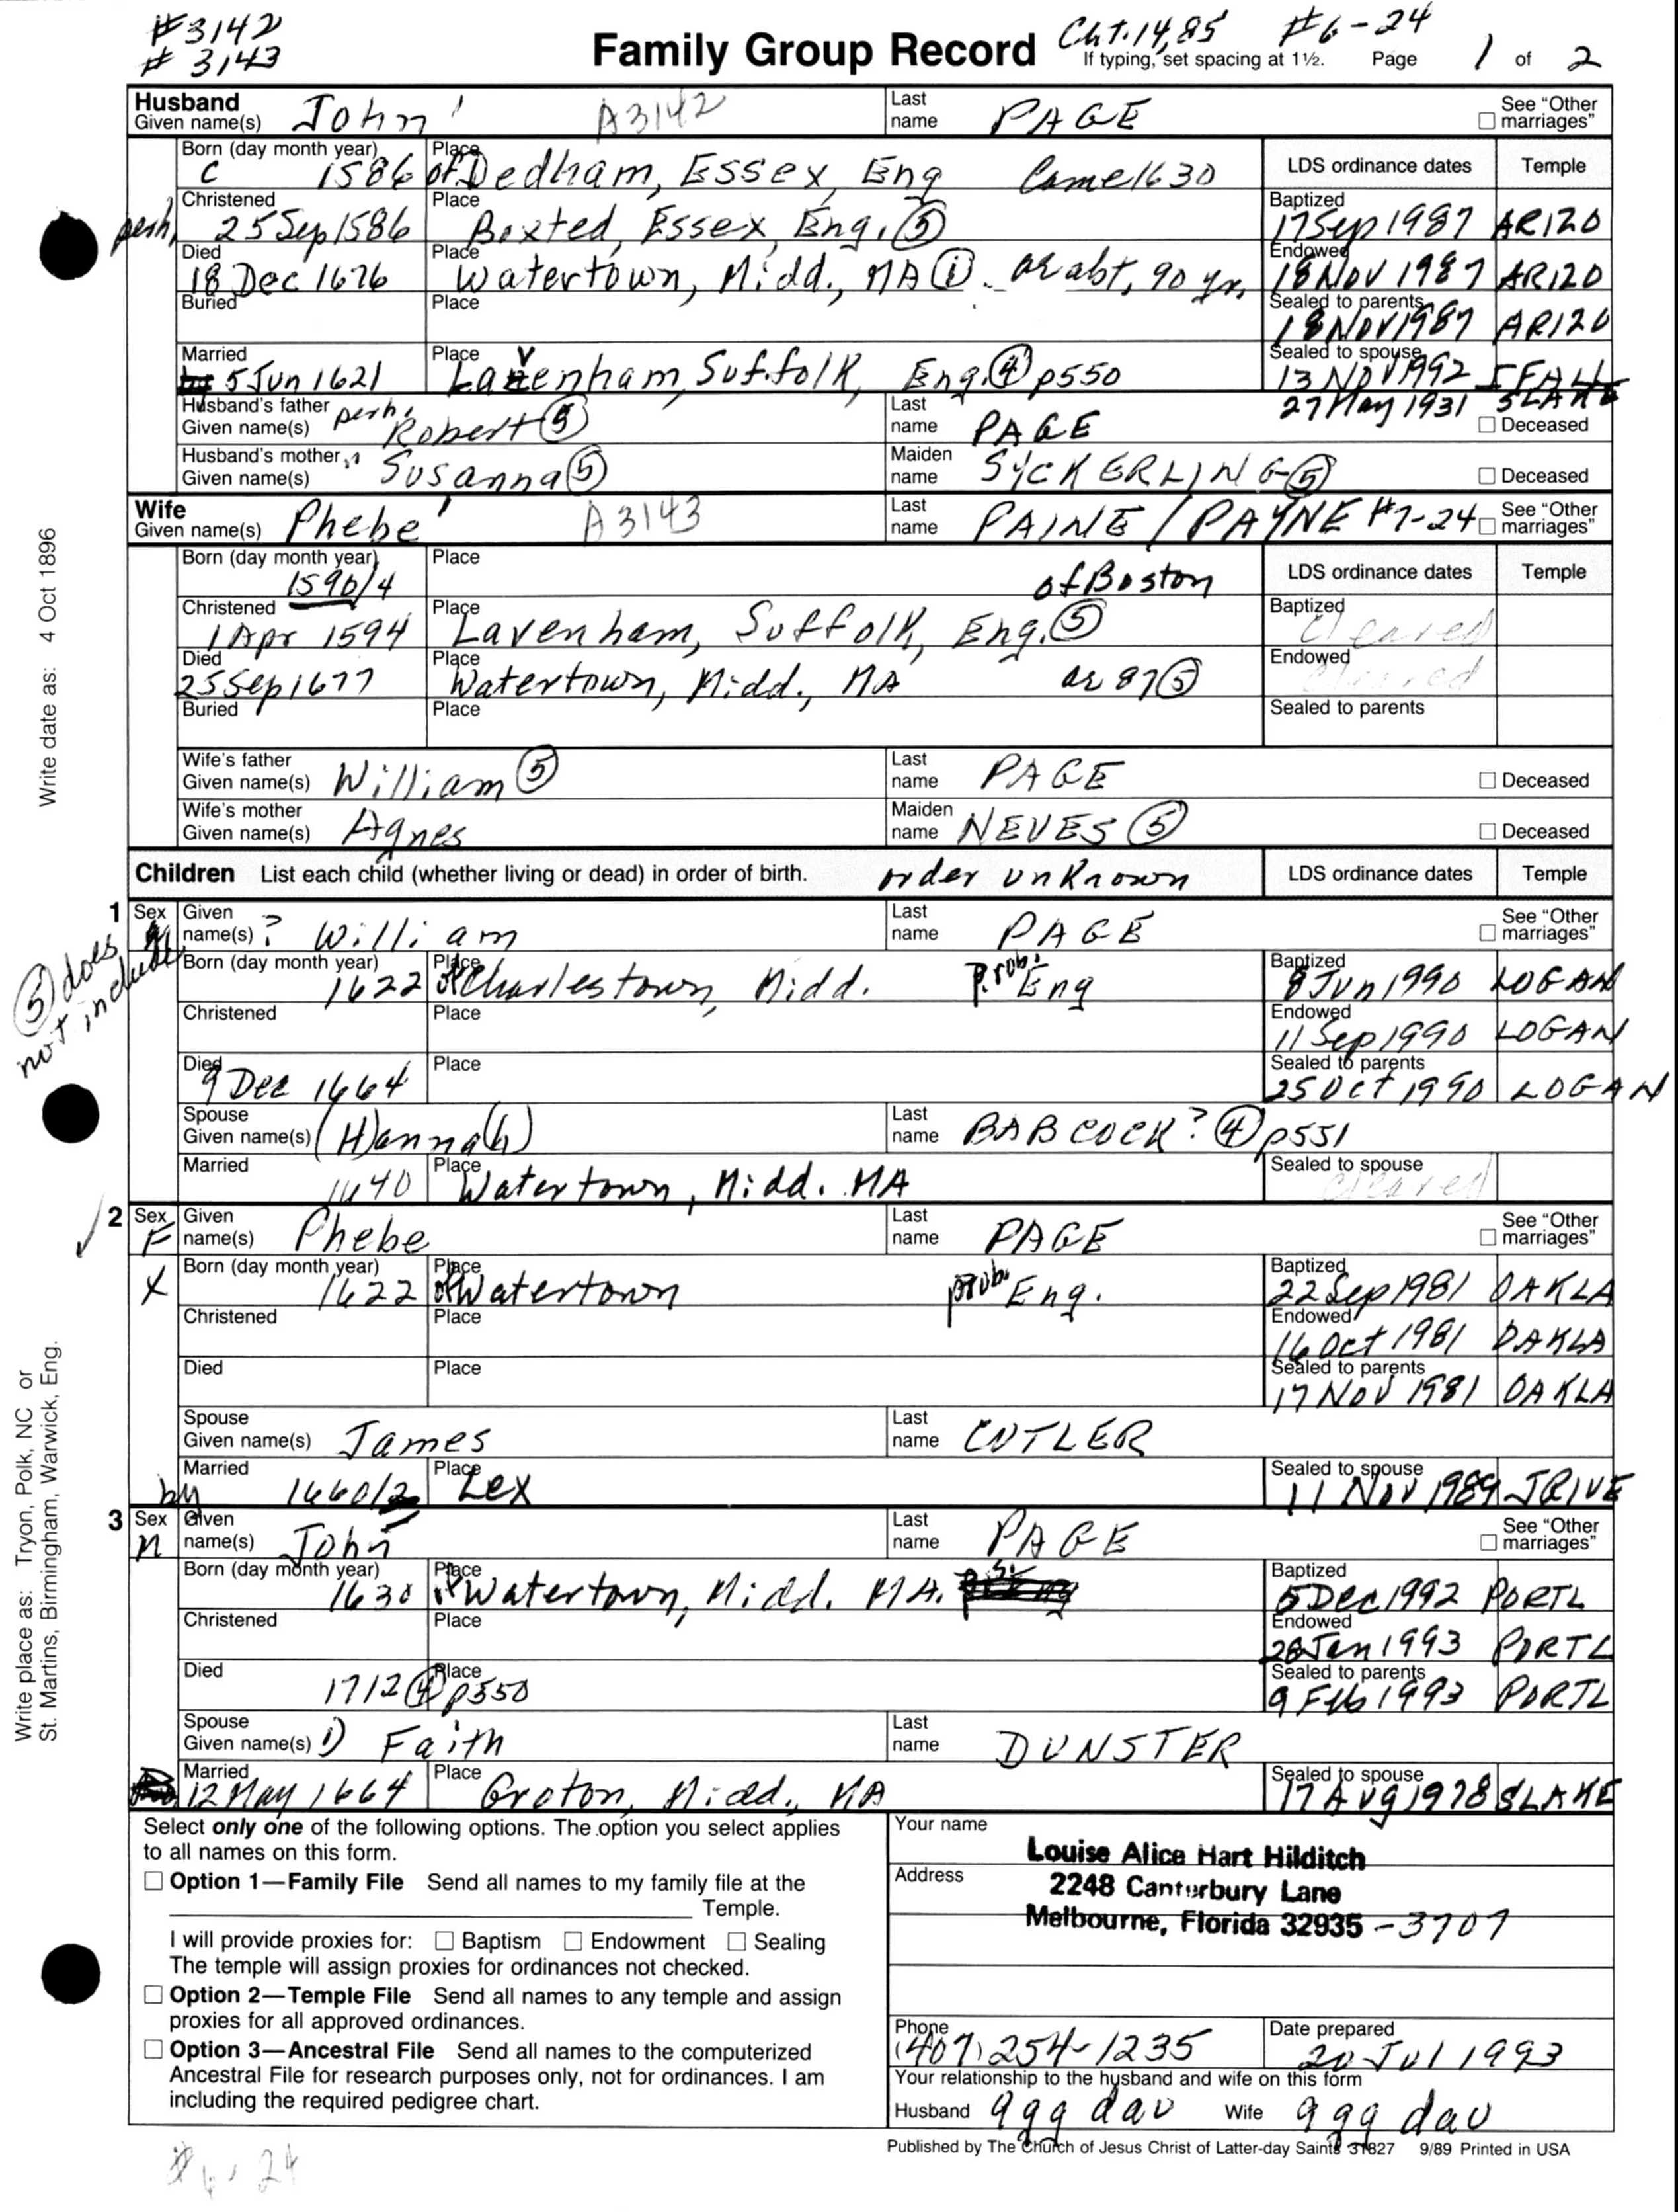 #3142
# 3143
Family Group Record
Cht. 14, 85 #6-24
If typing, set spacing at 1½. Page 1 of 2
Husband
Given name(s) John A3142 Last name PAGE See "Other marriages"
Born (day month year) c 1586 Place of Dedham, Essex, Eng Came 1630
LDS ordinance dates Temple
perh. Christened 25 Sep 1586 Place Boxted, Essex, Eng. ⑤
Baptized 17 Sep 1987 ARIZO
Died 18 Dec 1676 Place Watertown, Midd., MA ① ae abt. 90 yr.
Endowed 18 Nov 1987 ARIZO
Buried Place
Sealed to parents 18 Nov 1987 ARIZO
Married 5 Jun 1621 Place Lavenham, Suffolk, Eng. ④ p550
Sealed to spouse 13 Nov 1992 IFALL
27 May 1931 SLAKE
Husband's father
Given name(s) perh. Robert ⑤ Last name PAGE Deceased
Husband's mother
Given name(s) " Susanna ⑤ Maiden name SYCKERLING ⑤ Deceased
Wife
Given name(s) Phebe A3143 Last name PAINE / PAYNE #7-24 See "Other marriages"
Born (day month year) 1590/4 Place of Boston
LDS ordinance dates Temple
Christened 1 Apr 1594 Place Lavenham, Suffolk, Eng. ⑤
Baptized Cleared
Died 25 Sep 1677 Place Watertown, Midd., MA ae 87 ⑤
Endowed Cleared
Buried Place
Sealed to parents
Wife's father
Given name(s) William ⑤ Last name PAGE Deceased
Wife's mother
Given name(s) Agnes Maiden name NEVES ⑤ Deceased
Write date as: 4 Oct 1896
Children List each child (whether living or dead) in order of birth. order unknown
LDS ordinance dates Temple
⑤ does not include
1 Sex Given name(s) ? William Last name PAGE See "Other marriages"
Born (day month year) 1622 Place of Charlestown, Midd. Prob. Eng
Baptized 8 Jun 1990 LOGAN
Christened Place
Endowed 11 Sep 1990 LOGAN
Died 9 Dec 1664 Place
Sealed to parents 25 Oct 1990 LOGAN
Spouse
Given name(s) (H)anna(h) Last name BABCOCK? ④ p551
Married 1640 Place Watertown, Midd. MA
Sealed to spouse Cleared
2 Sex F Given name(s) Phebe Last name PAGE See "Other marriages"
X Born (day month year) 1622 Place of Watertown prob. Eng.
Baptized 22 Sep 1981 OAKLA
Christened Place
Endowed 16 Oct 1981 OAKLA
Died Place
Sealed to parents 17 Nov 1981 OAKLA
Spouse
Given name(s) James Last name CUTLER
Married by 1660/2 Place Lex
Sealed to spouse 11 Nov 1989 JRIVE
3 Sex M Given name(s) John Last name PAGE See "Other marriages"
Born (day month year) 1630 Place Watertown, Midd. MA.
Baptized 5 Dec 1992 PORTL
Christened Place
Endowed 28 Jan 1993 PORTL
Died 1712 ④ p550 Place
Sealed to parents 9 Feb 1993 PORTL
Spouse
Given name(s) 1) Faith Last name DUNSTER
Married 12 May 1664 Place Groton, Midd., MA
Sealed to spouse 17 Aug 1978 SLAKE
Write place as: Tryon, Polk, NC or
St. Martins, Birmingham, Warwick, Eng.
Select only one of the following options. The option you select applies
to all names on this form.
Option 1—Family File Send all names to my family file at the
Temple.
I will provide proxies for: Baptism Endowment Sealing
The temple will assign proxies for ordinances not checked.
Option 2—Temple File Send all names to any temple and assign
proxies for all approved ordinances.
Option 3—Ancestral File Send all names to the computerized
Ancestral File for research purposes only, not for ordinances. I am
including the required pedigree chart.
Your name
Louise Alice Hart Hilditch
Address
2248 Canterbury Lane
Melbourne, Florida 32935-3707
Phone (407) 254-1235 Date prepared 20 Jul 1993
Your relationship to the husband and wife on this form
Husband ggg dau Wife ggg dau
Published by The Church of Jesus Christ of Latter-day Saints 31827 9/89 Printed in USA
#6-24